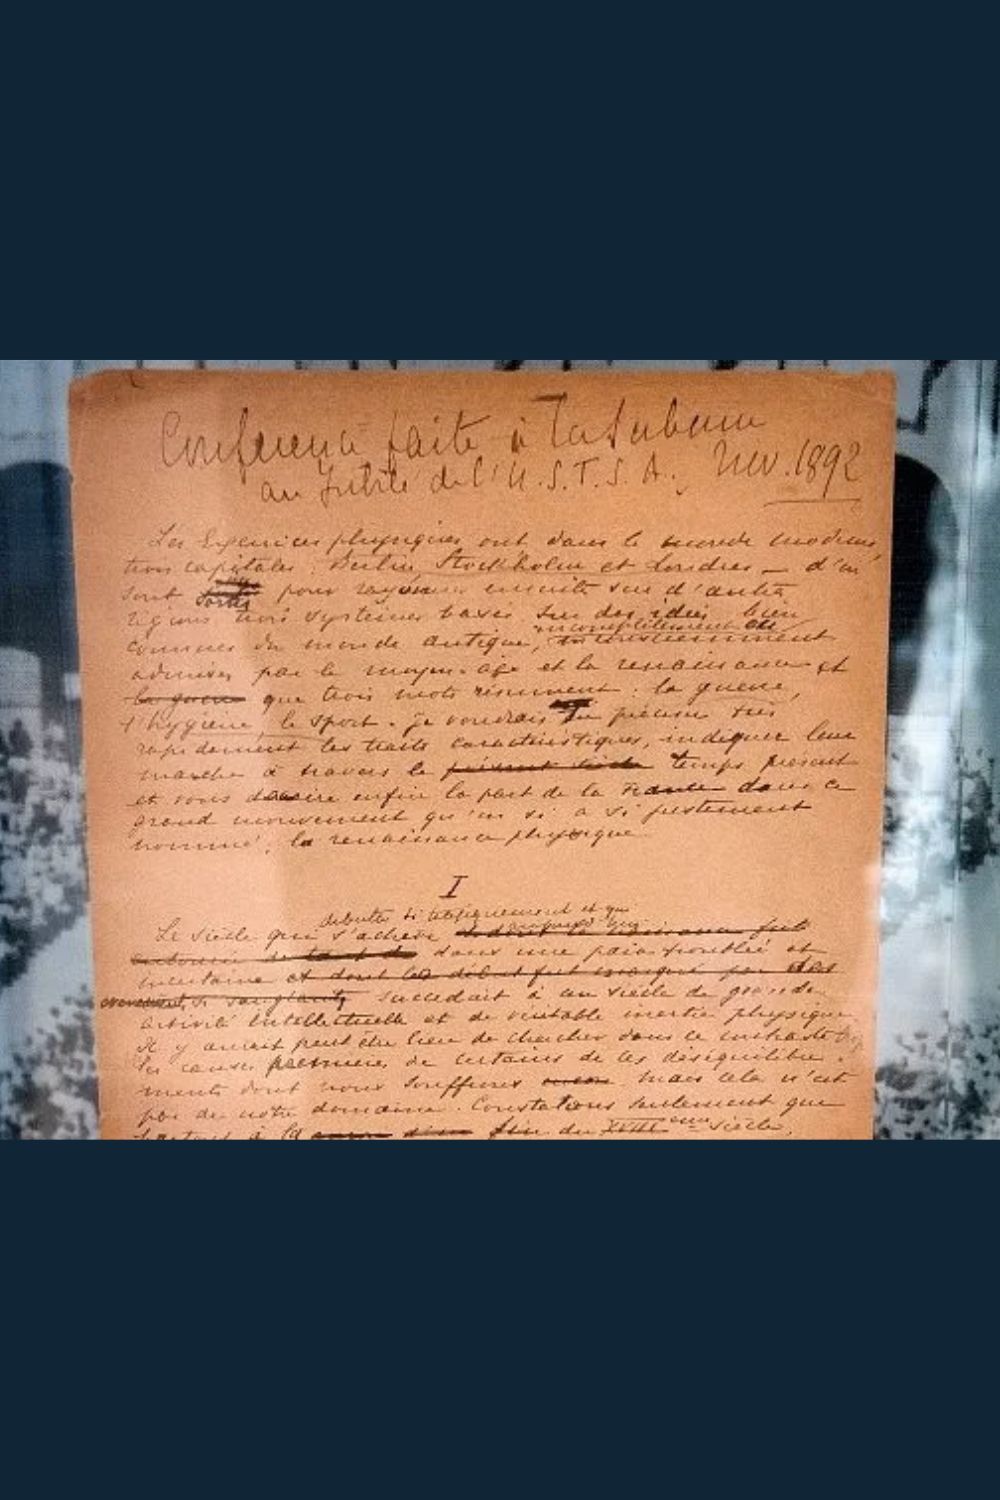 Conférence faite à la Sorbonne
au Jubilé de l'U.S.F.S.A., Nov. 1892
Les Exercices physiques ont dans le monde moderne
trois capitales : Berlin, Stockholm et Londres — d'où
sont sortis pour rayonner ensuite sur d'autres
régions trois systèmes basés sur des idées bien
incomplètement
connues du monde antique,
admises par le moyen-age et la renaissance et
la guerre que trois mots résument : la guerre,
l'hygiène, le sport. Je voudrais préciser très
rapidement les traits caractéristiques, indiquer leur
marche à travers le temps présent
et vous décrire enfin la part de la France dans ce
grand mouvement qu'on si a si justement
nommé, la renaissance physique.
I
débuta si et qui
Le siècle qui s'achève fut
dans une paix troublée et
incertaine et dont le début fut marqué par des
si sanglants, succédait à un siècle de grande
activité intellectuelle et de véritable inertie physique.
Il y aurait peut être lieu de chercher dans ce contraste
les causes premières de certains de ces déséquilibre-
ments dont nous souffrons mais cela n'est
pas de notre domaine. Constatons seulement que
fin du XVIIIème siècle,